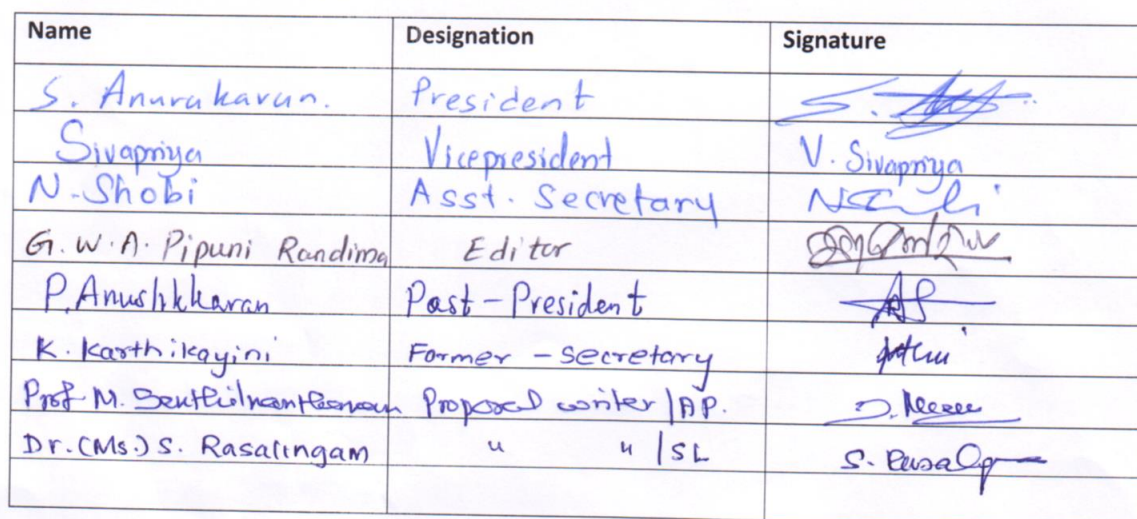 Name Designation Signature
S. Anurakavan. President
Sivapriya Vicepresident V. Sivapriya
N. Shobi Asst. Secretary
G. W. A. Pipuni Randima Editor
P. Anushkkaran Past - President
K. Karthikayini Former - secretary
Prof M. Senthilnanthanan Proposal writer / AP.
Dr. (Ms.) S. Rasalingam " " / SL